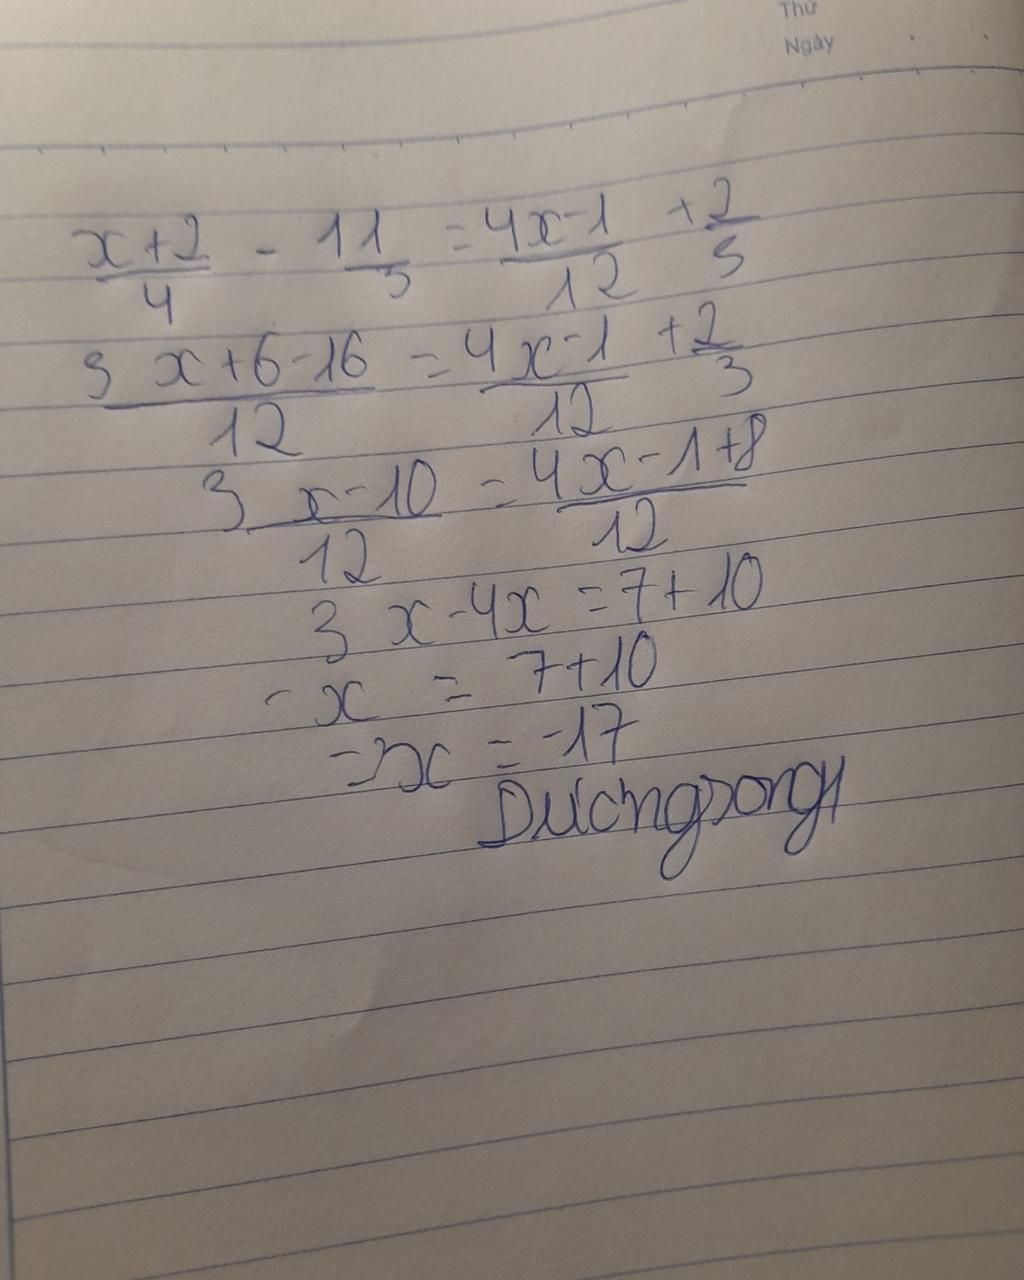 Thứ
Ngày
x+2/4 - 11/3 = 4x-1/12 + 2/3
3x+6-16/12 = 4x-1/12 + 2/3
3x-10/12 = 4x-1+8/12
3x-4x = 7+10
-x = 7+10
=> x = -17
Dươngsong